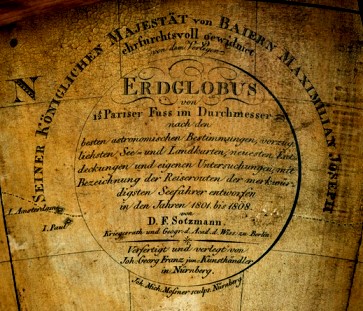 SEINER KÖNIGLICHEN MAJESTÄT von BAIERN MAXIMILIAN JOSEPH
ehrfurchtsvoll gewidmet
von dem Verleger
ERDGLOBUS
von
Pariser Fuss im Durchmesser
nach den
besten astronomischen Bestimmungen, vorzüg-
lichsten See- und Landkarten, neuesten Ent-
deckungen und eigenen Untersuchungen, mit
Bezeichnung der Reiserouten der merkwür-
digsten Seefahrer entworfen
in den Jahren 1801 bis 1808.
von
D. F. Sotzmann,
Kriegsrath und Geogr. d. Acad. d. Wiss. zu Berlin.
Verfertigt und verlegt von
Joh. Georg Franz jun. Kunsthändler
in Nürnberg.
Joh. Mich. Mosner sculps. Nürnberg
N
I. Amsterdam
I. Paul